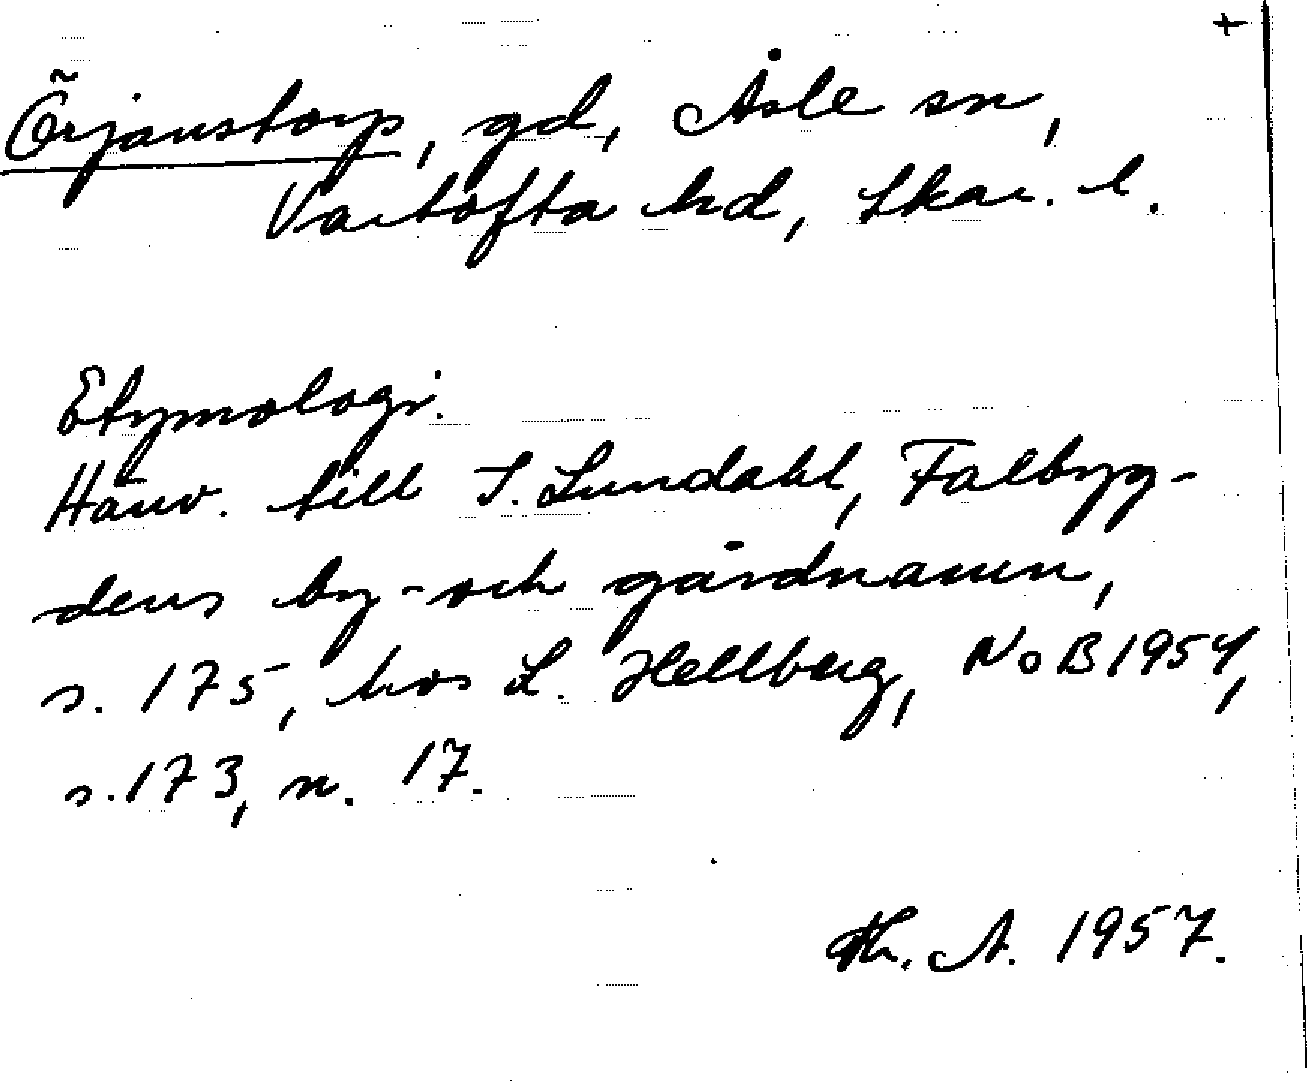 +
Örjanstorp, gd, Åsle sn,
Vartofta hd, Skar. l.
Etymologi.
Hänv. till I. Lundahl, Falbyg-
dens by- och gårdnamn,
s. 175, hos L. Hellberg, NoB 1954,
s. 173, n. 17.
Th. A. 1957.